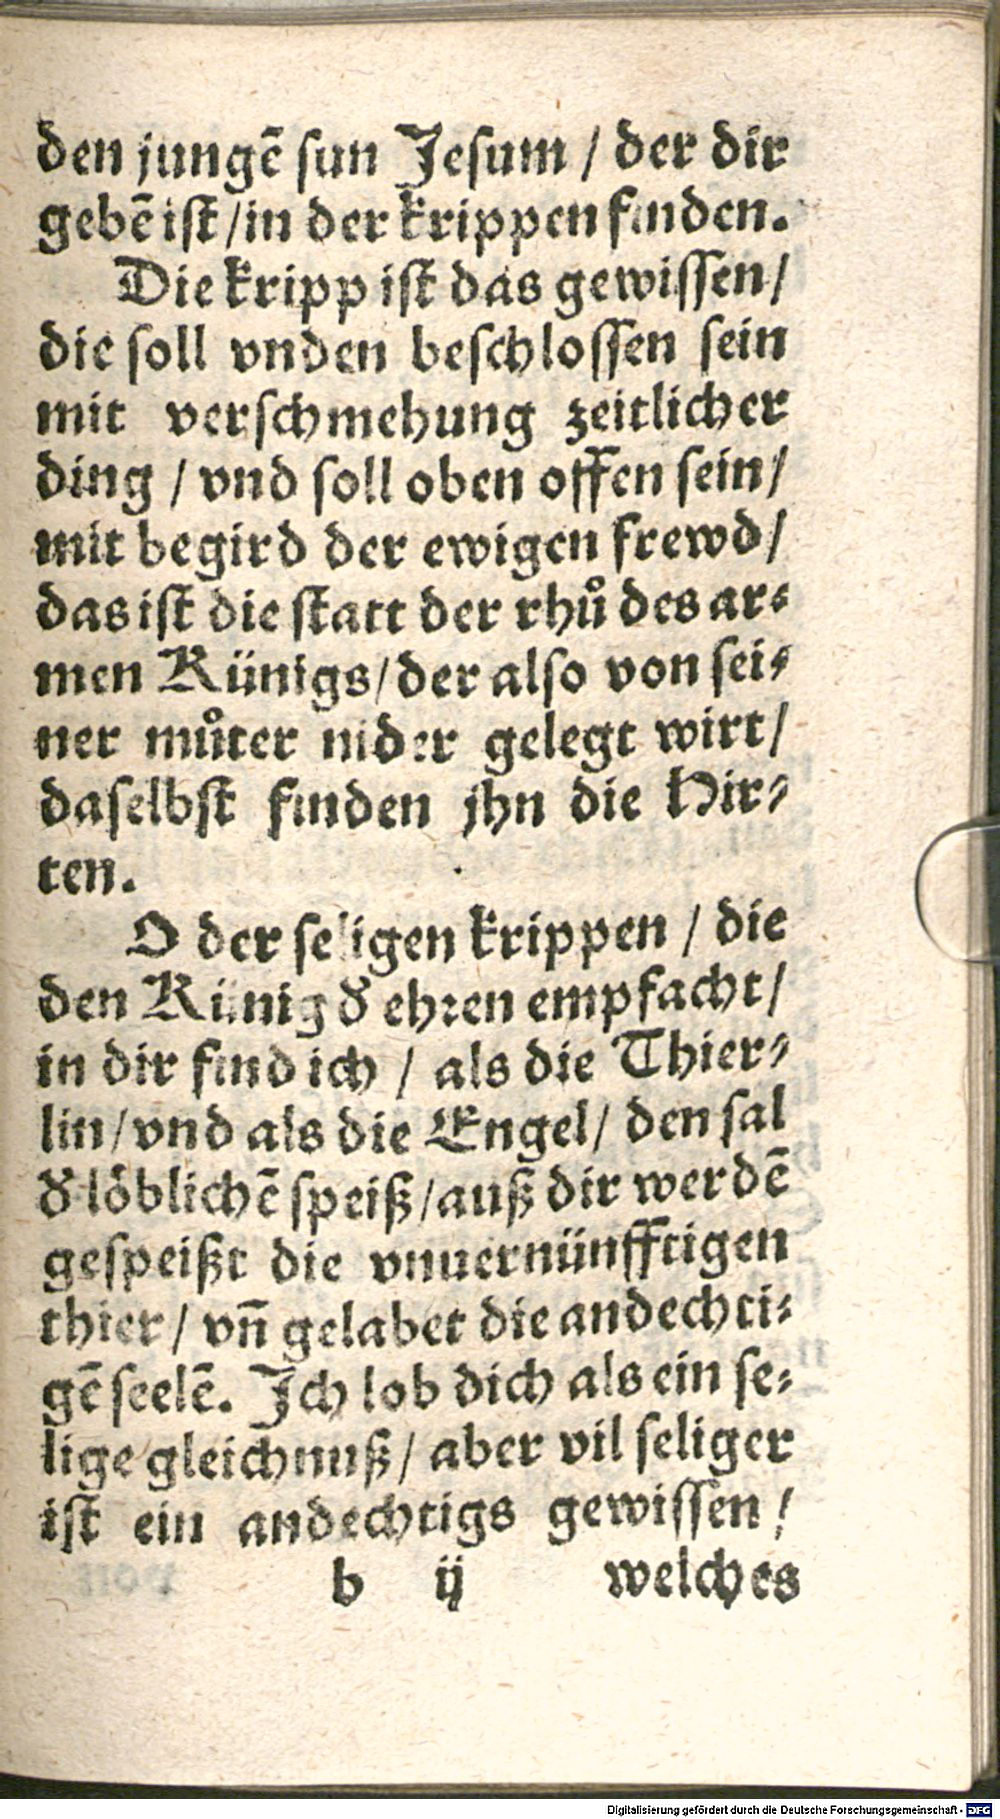 den jungē ſun Jeſum / der dir
gebē iſt / in der krippen finden.
Die kripp iſt das gewiſſen /
die ſoll vnden beſchloſſen ſein
mit verſchmehung zeitlicher
ding / vnd ſoll oben offen ſein /
mit begird der ewigen frewd /
das iſt die ſtatt der rhů des ar⸗
men Künigs / der alſo von ſei⸗
ner můter nider gelegt wirt /
daſelbſt finden jhn die Hir⸗
ten.
O der ſeligen krippen / die
den Künig d᷒ ehꝛen empfacht /
in dir find ich / als die Thier⸗
lin / vnd als die Engel / den ſal
d᷒ löblichē ſpeiß / auß dir werdē
geſpeißt die vnuernünfftigen
thier / vñ gelabet die andechti⸗
gē ſeelē. Ich lob dich als ein ſe⸗
lige gleichnuß / aber vil ſeliger
iſt ein andechtigs gewiſſen /
b ij welches
Digitalisierung gefördert durch die Deutsche Forschungsgemeinschaft - DFG